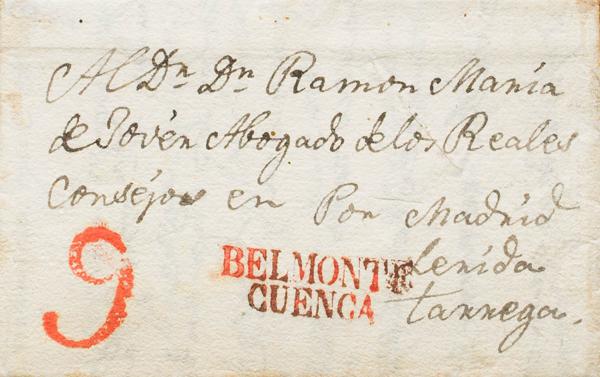 Al Dn. Dn. Ramon Maria
de Jovén Abogado de los Reales
Conséjos en Por Madrid
Lerida
tarrega.
9
BELMONTE
CUENCA